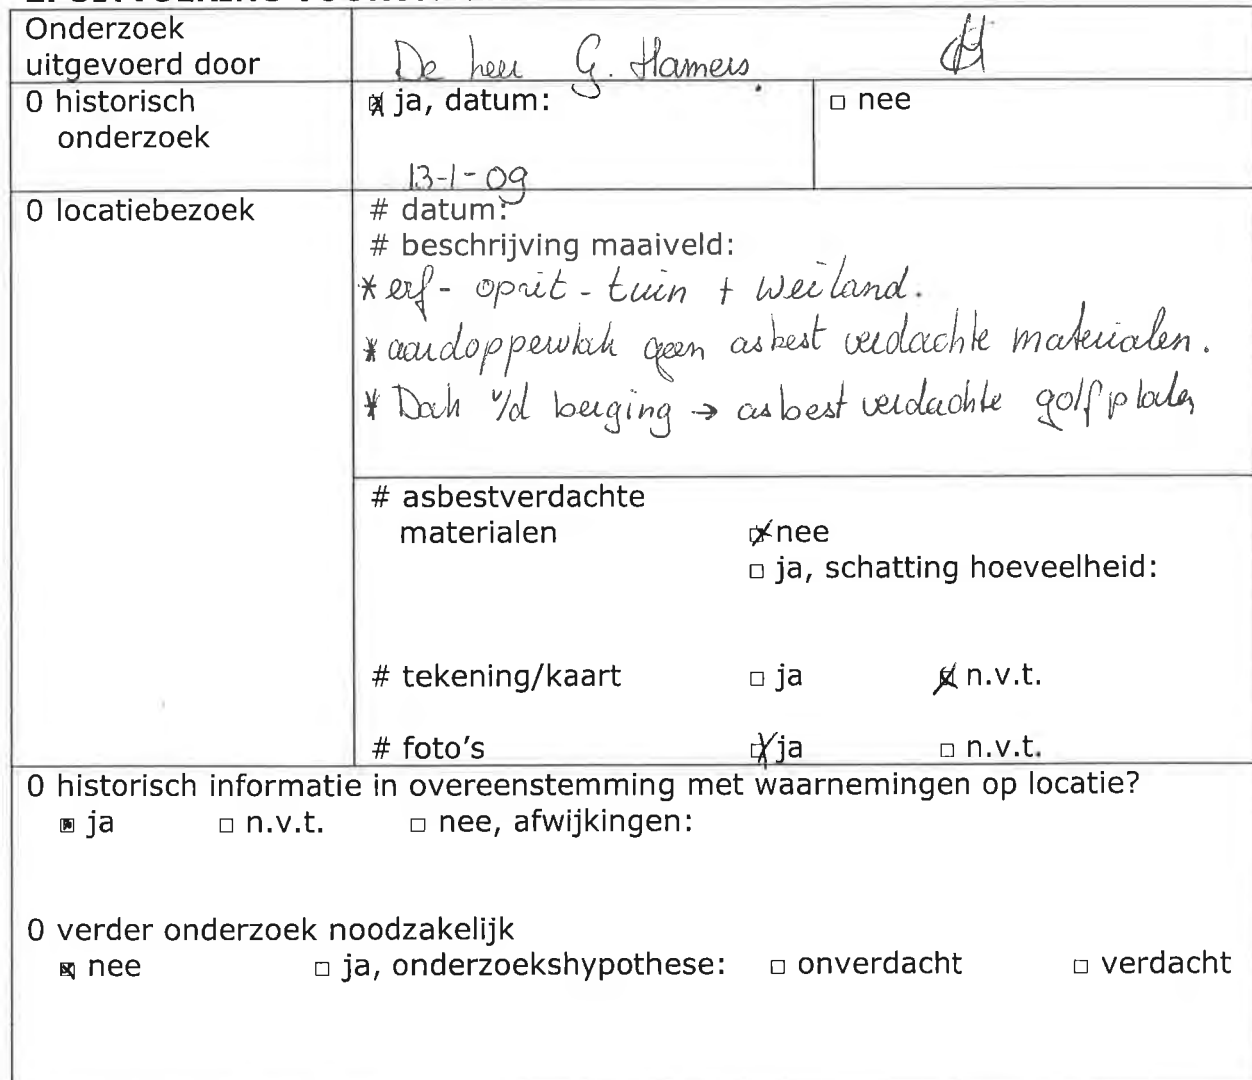 Onderzoek
uitgevoerd door De heer G. Hamers.
0 historisch ☒ ja, datum: □ nee
onderzoek
13-1-09
0 locatiebezoek # datum:
# beschrijving maaiveld:
* erf - oprit - tuin + weiland.
* aardoppervlak geen asbest verdachte materialen.
* Dak v/d berging → asbest verdachte golfplaten
# asbestverdachte
materialen ☒ nee
□ ja, schatting hoeveelheid:
# tekening/kaart □ ja ☒ n.v.t.
# foto's ☒ ja □ n.v.t.
0 historisch informatie in overeenstemming met waarnemingen op locatie?
☒ ja □ n.v.t. □ nee, afwijkingen:
0 verder onderzoek noodzakelijk
☒ nee □ ja, onderzoekshypothese: □ onverdacht □ verdacht